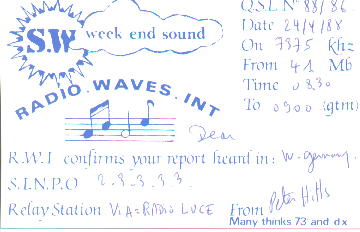 S.W week end sound
RADIO.WAVES.INT
Q.S.L. N° 88/86
Date 24/4/88
On 7375 Khz
From 41 Mb
Time 0830
To 0900 (gtm)
Dear
R.W.I confirms your report heard in: W. germany.
S.I.N.P.O 2.3.3.3.3
Relay Station VIA = RADIO LUCE From Peter Hills
Many thinks 73 and dx